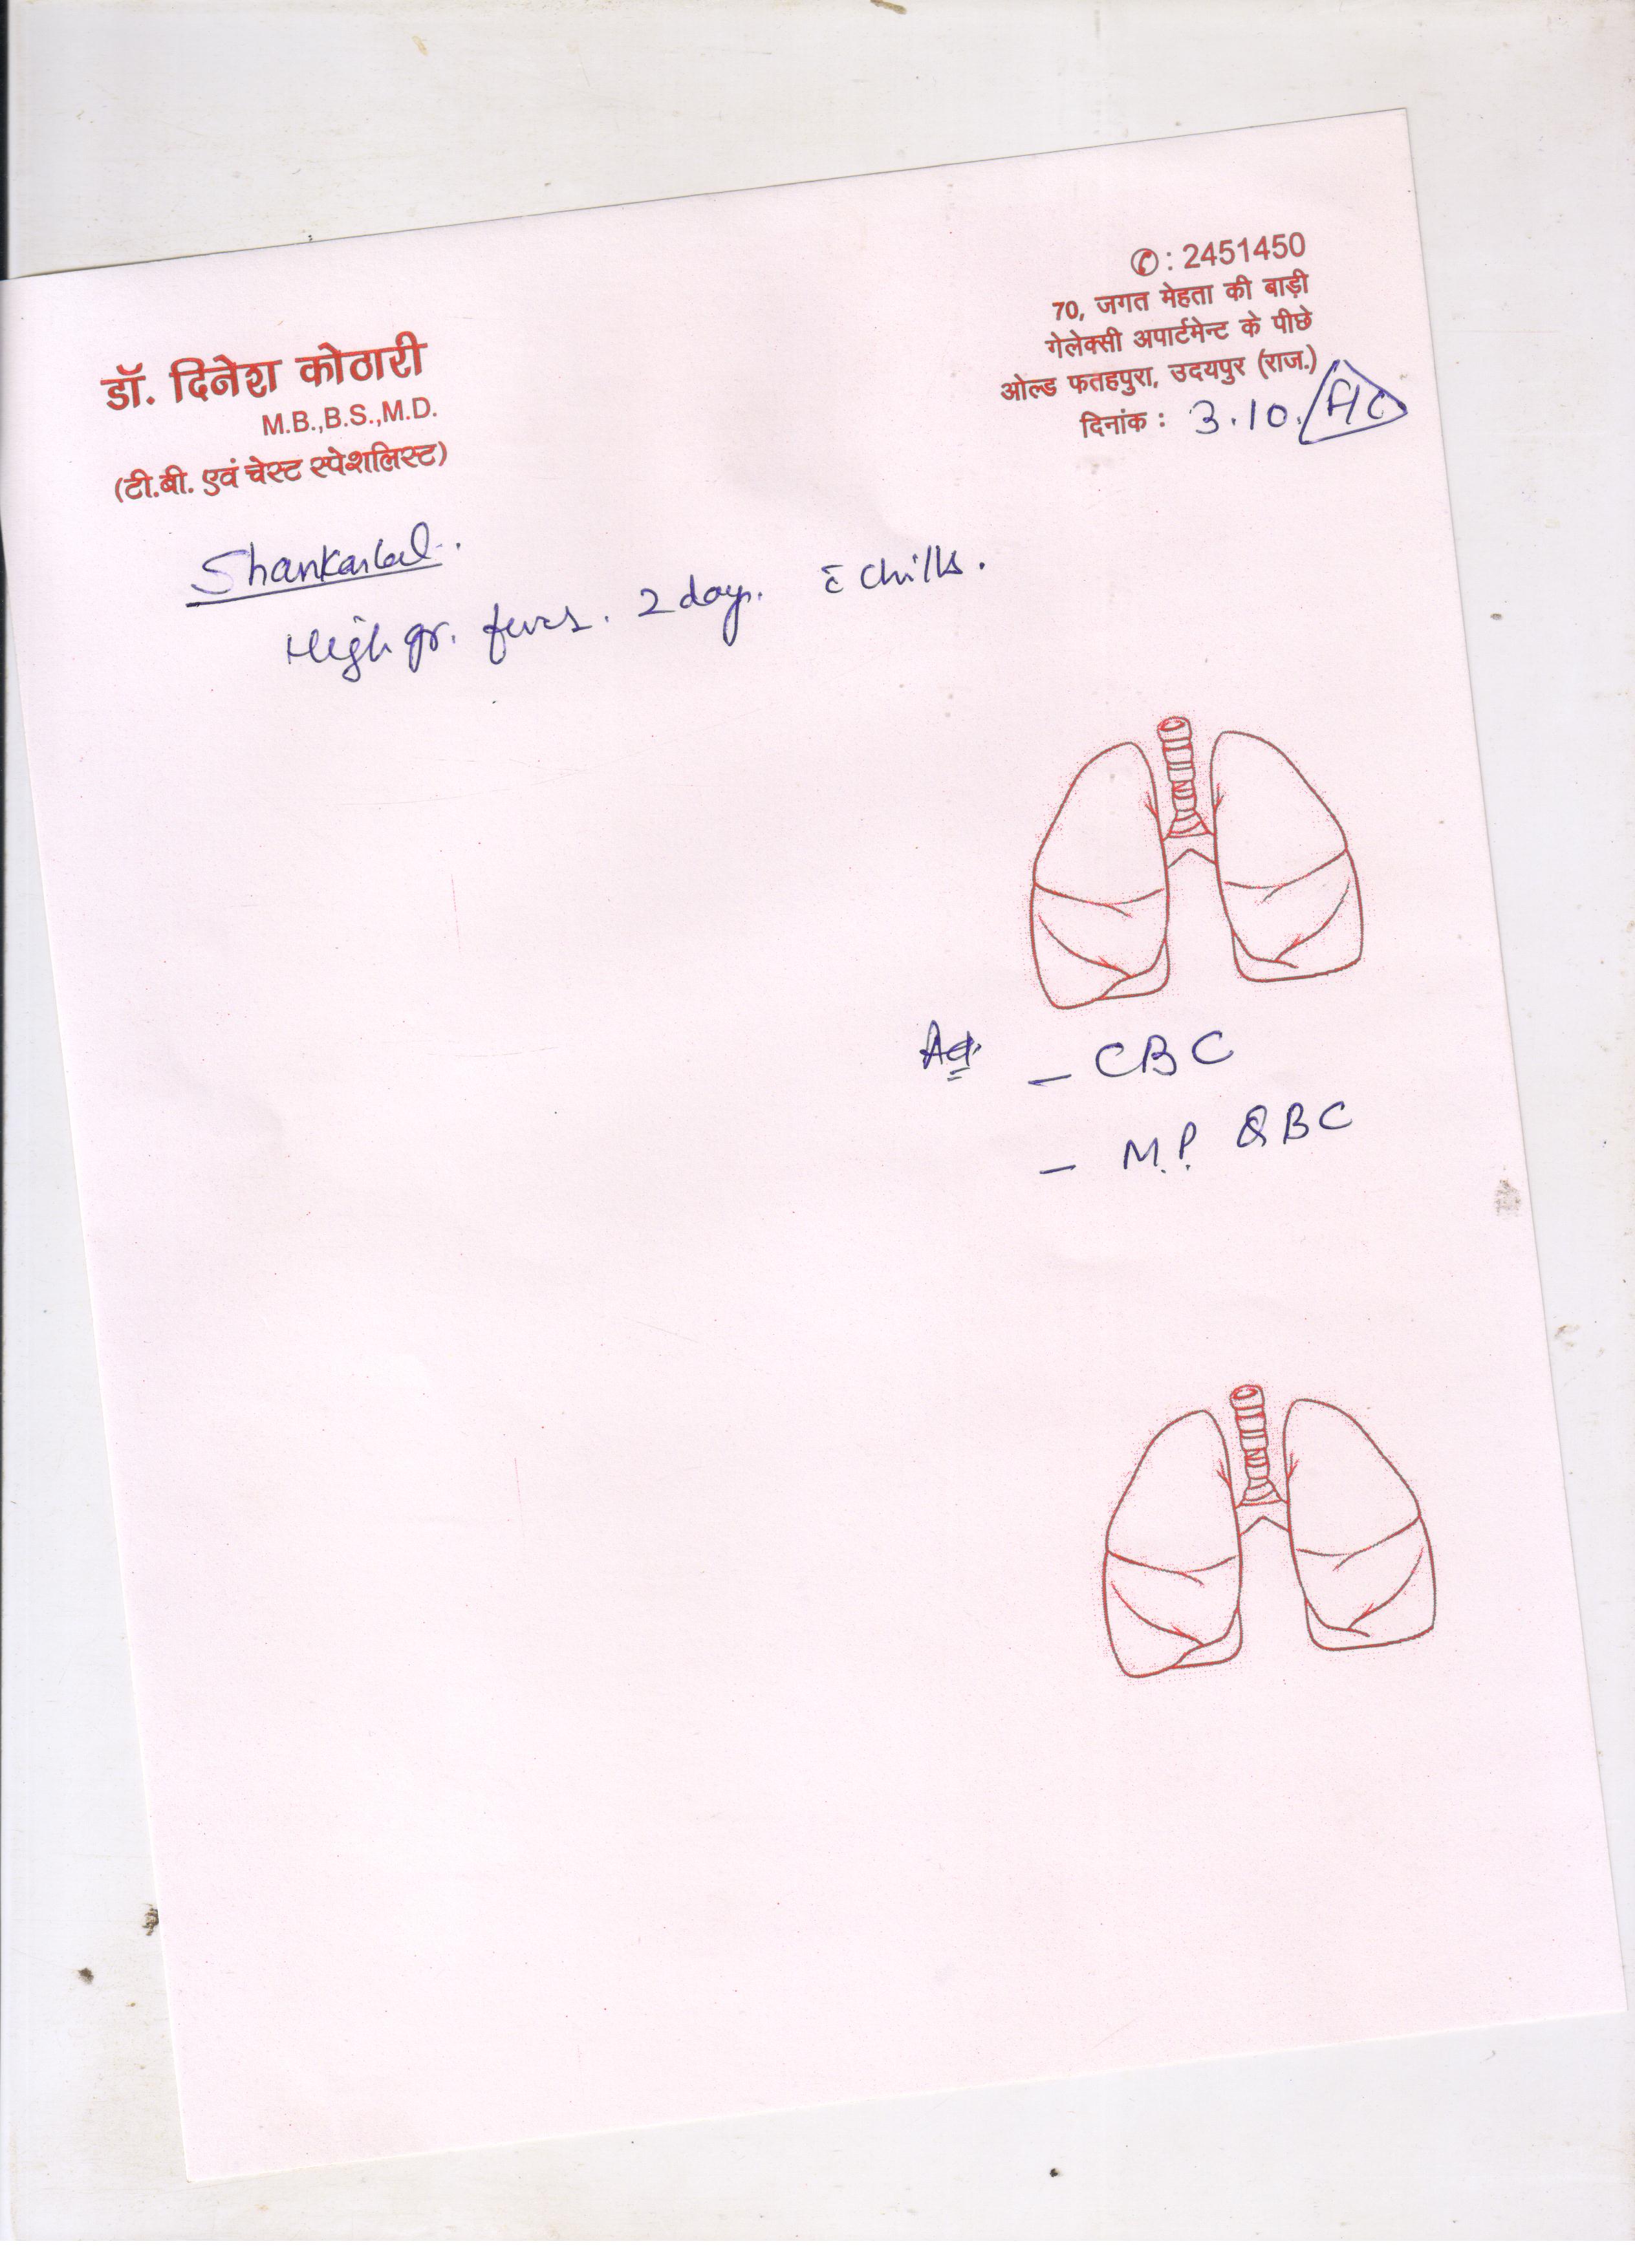 : 2451450
70, जगत मेहता की बाड़ी
गेलेक्सी अपार्टमेन्ट के पीछे
ओल्ड फतहपुरा, उदयपुर (राज.)
दिनांक : 3.10.
डॉ. दिनेश कोठारी
M.B.,B.S.,M.D.
(टी.बी. एवं चेस्ट स्पेशलिस्ट)
Shankarlal.
High gr. fever. 2 days. c̄ chills.
- CBC
- M.P. QBC